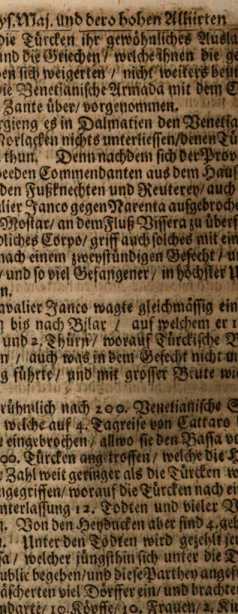 ys. Maj. und dero hohen Alliirten
die Türcken ihr gewöhnliches Ausla
und die Griechen / welche ihnen die ge
en sich weigerten / nicht weiters be
ie Venetianische Armada mit dem C
Zante über / vorgenommen.
rgieng es in Dalmatien den Venetia
Morlacken nichts unterliessen / denen Tü
thun. Denn nachdem sich der Prov
beeden Commendanten aus dem Hauß
den Fußknechten und Reuterey / auch
alier Janco gegen Narenta auffgebroche
Mostar / an dem Fluß Vissera zu überf
dliches Corpo / griff auch solches mit ein
nach einem zweystündigen Gefecht / u
/ und so viel Gefangener / in höchster U
n.
avalier Janco wagte gleichmässig ein
g biß nach Bilar / auf welchem er 1
und 2. Thürn / worauf Türckische B
n / auch was in dem Gefecht nicht u
g führte / und mit grosser Beute wie
rühmlich nach 200. Venetianische S
welche auf 4. Tagreise von Cattaro
n eingebrochen / allwo sie den Bassa vo
00. Türcken angetroffen / welche die H
Zahl weit geringer als die Türcken w
ngegriffen / worauf die Türcken nach ei
nterlassung 12. Todten und vieler V
n. Von den Heyducken aber sind 4. gebl
Unter den Todten wird gezehlt je
sa / welcher jüngsthin sich unter die T
ublic begeben / und diese Parthey angef
äscherten viel Dörffer ein / und brachten
ndarte / 10. Köpffe / 10. Fragen / K